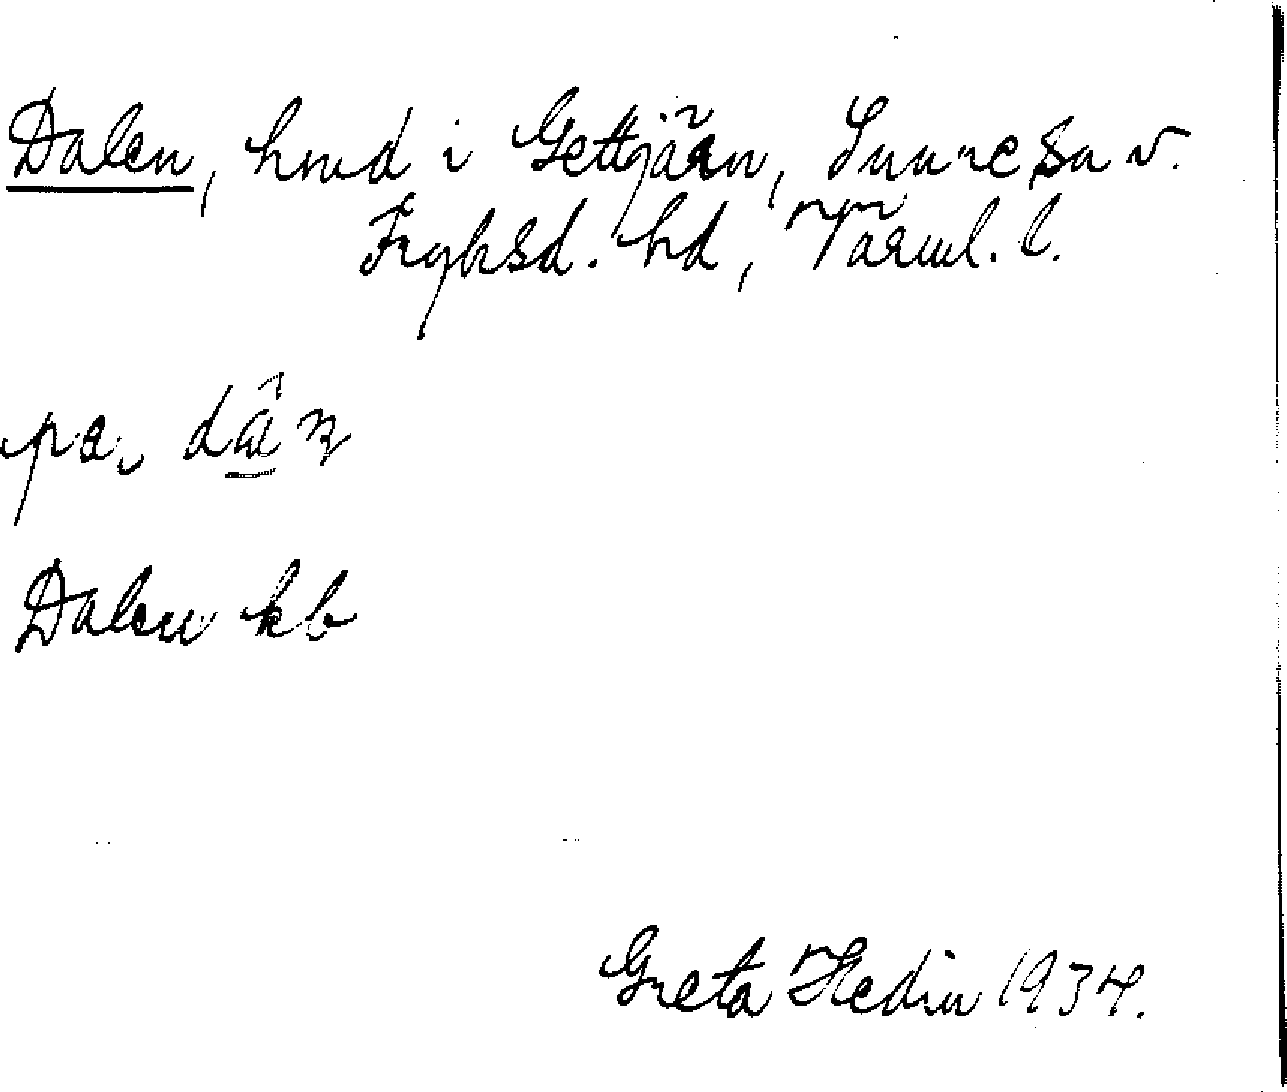 Dalen, hmd i Gettjärn, Sunne sn v.
Fryksd. hd, Värml. l.
pa, dân
Dalen kb
Greta Hedin 1934.